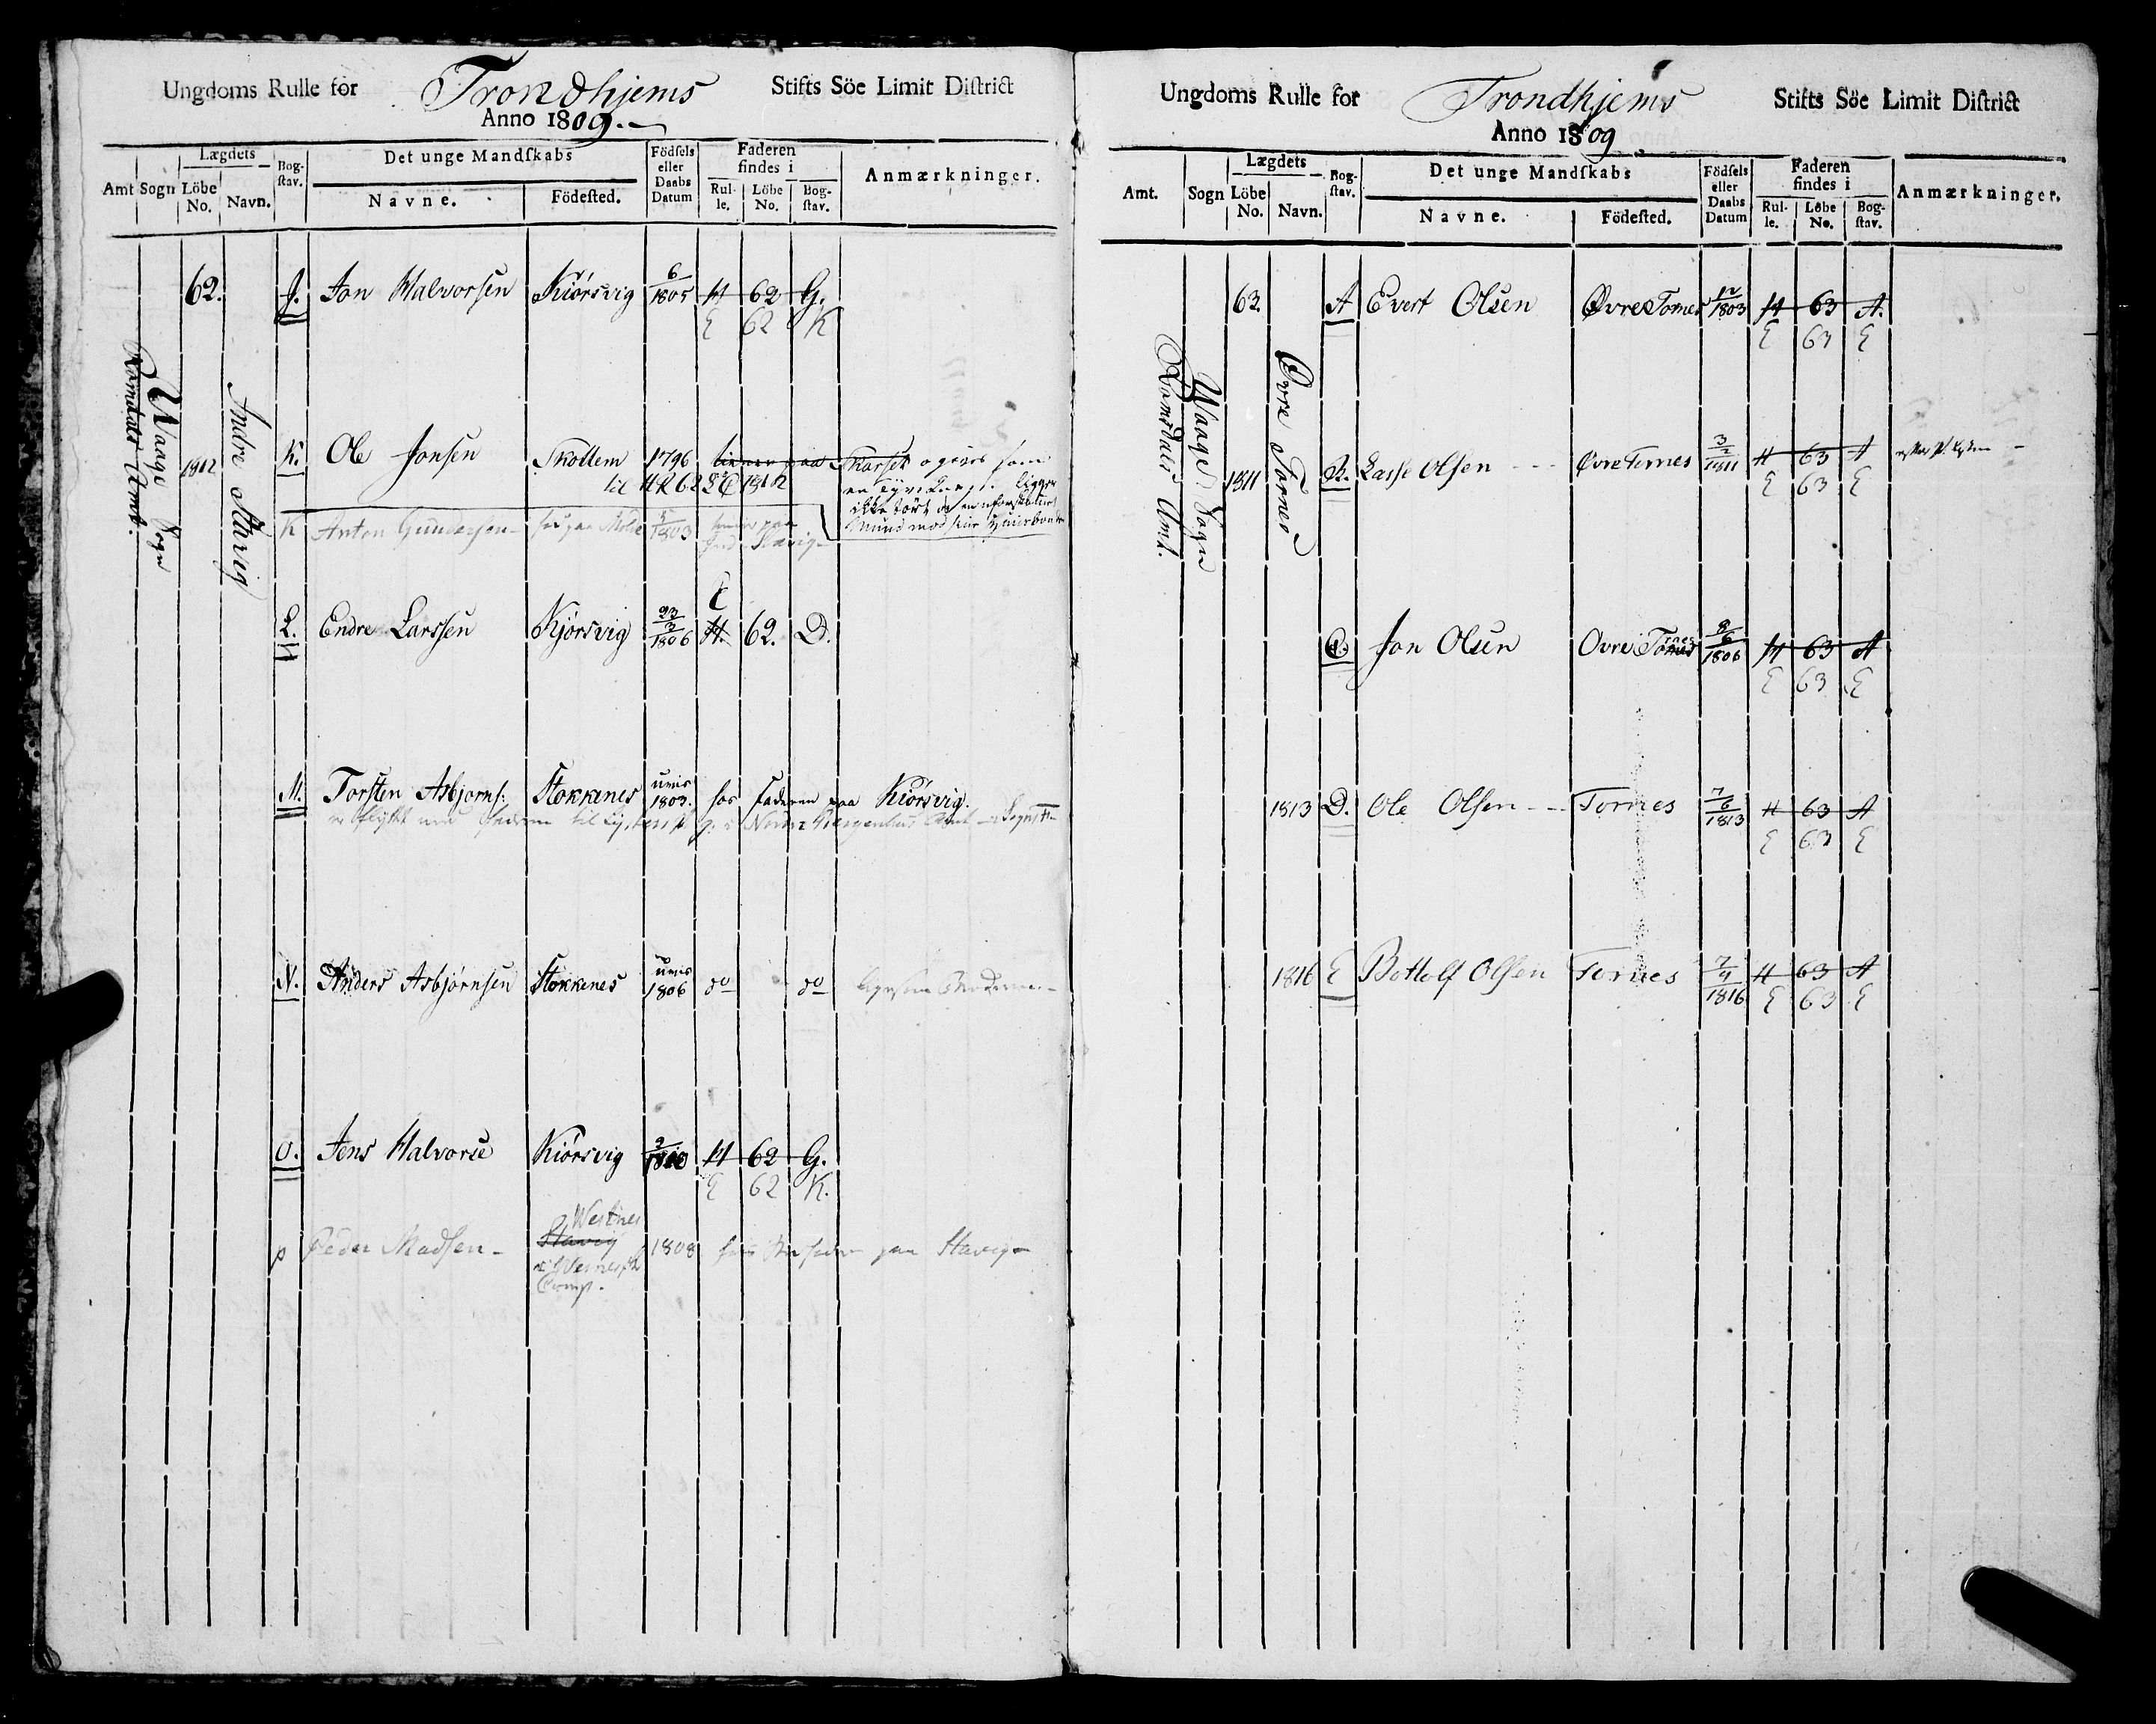 Ungdoms Rulle for Trondhjems Stifts Söe Limit District
Anno 1809.
Amt Sogn Lægdets Löbe No. Navn. Bogstav. Det unge Mandskabs Navne. Födested. Födsels eller Daabs Datum Faderen findes i Rulle. Löbe No. Bogstav. Anmærkninger.
Romsdals Amt.
Waage Sogn
Indre Stavig
62. J. Jon Halvorsen Kiørsvig 6/1805 H 62 G.
E 62 K
1812 K. Ole Jonsen Skottem 1796 paa Skarset
til HR 62
K Anton Gundersen 1803
L. Endre Larssen Kjørsvig 23/3 1806 E H. 62. D.
M. Torsten Asbjørns: Stokkenes 1803. hos Faderen paa Kiörsvig.
er flyttet med Faderen til
N. Anders Asbjørnsen Stokkenes 1806 do do
O. Jens Halvorse Kiörsvig H 62 G.
E 62 K.
Westnes
p Peder Madsen Stavig 1808 paa Stavig
Comp.
Ungdoms Rulle for Trondhjems Stifts Söe Limit District
Anno 1809
Amt. Sogn Lægdets Löbe No. Navn. Bogstav. Det unge Mandskabs Navne. Födested. Födsels eller Daabs Datum Faderen findes i Rulle. Löbe No. Bogstav. Anmærkninger.
Romsdals Amt.
Waage Sogn
Øvre Tornes
63. A Evert Olsen Øvre Tornes 12/1803 H 63 A.
E 63 E
1811 B. Lasse Olsen Øvre Tornes 3/2 1811 H 63 A
E 63 E
C. Jon Olsen Øvre Tornes 8/6 1806 H 63 A
E 63 E
1813 D. Ole Olsen Tornes 7/6 1813 H 63 A
E 63 E
1816 E Bottolf Olsen Tornes 7/4 1816 H 63 A
E 63 E